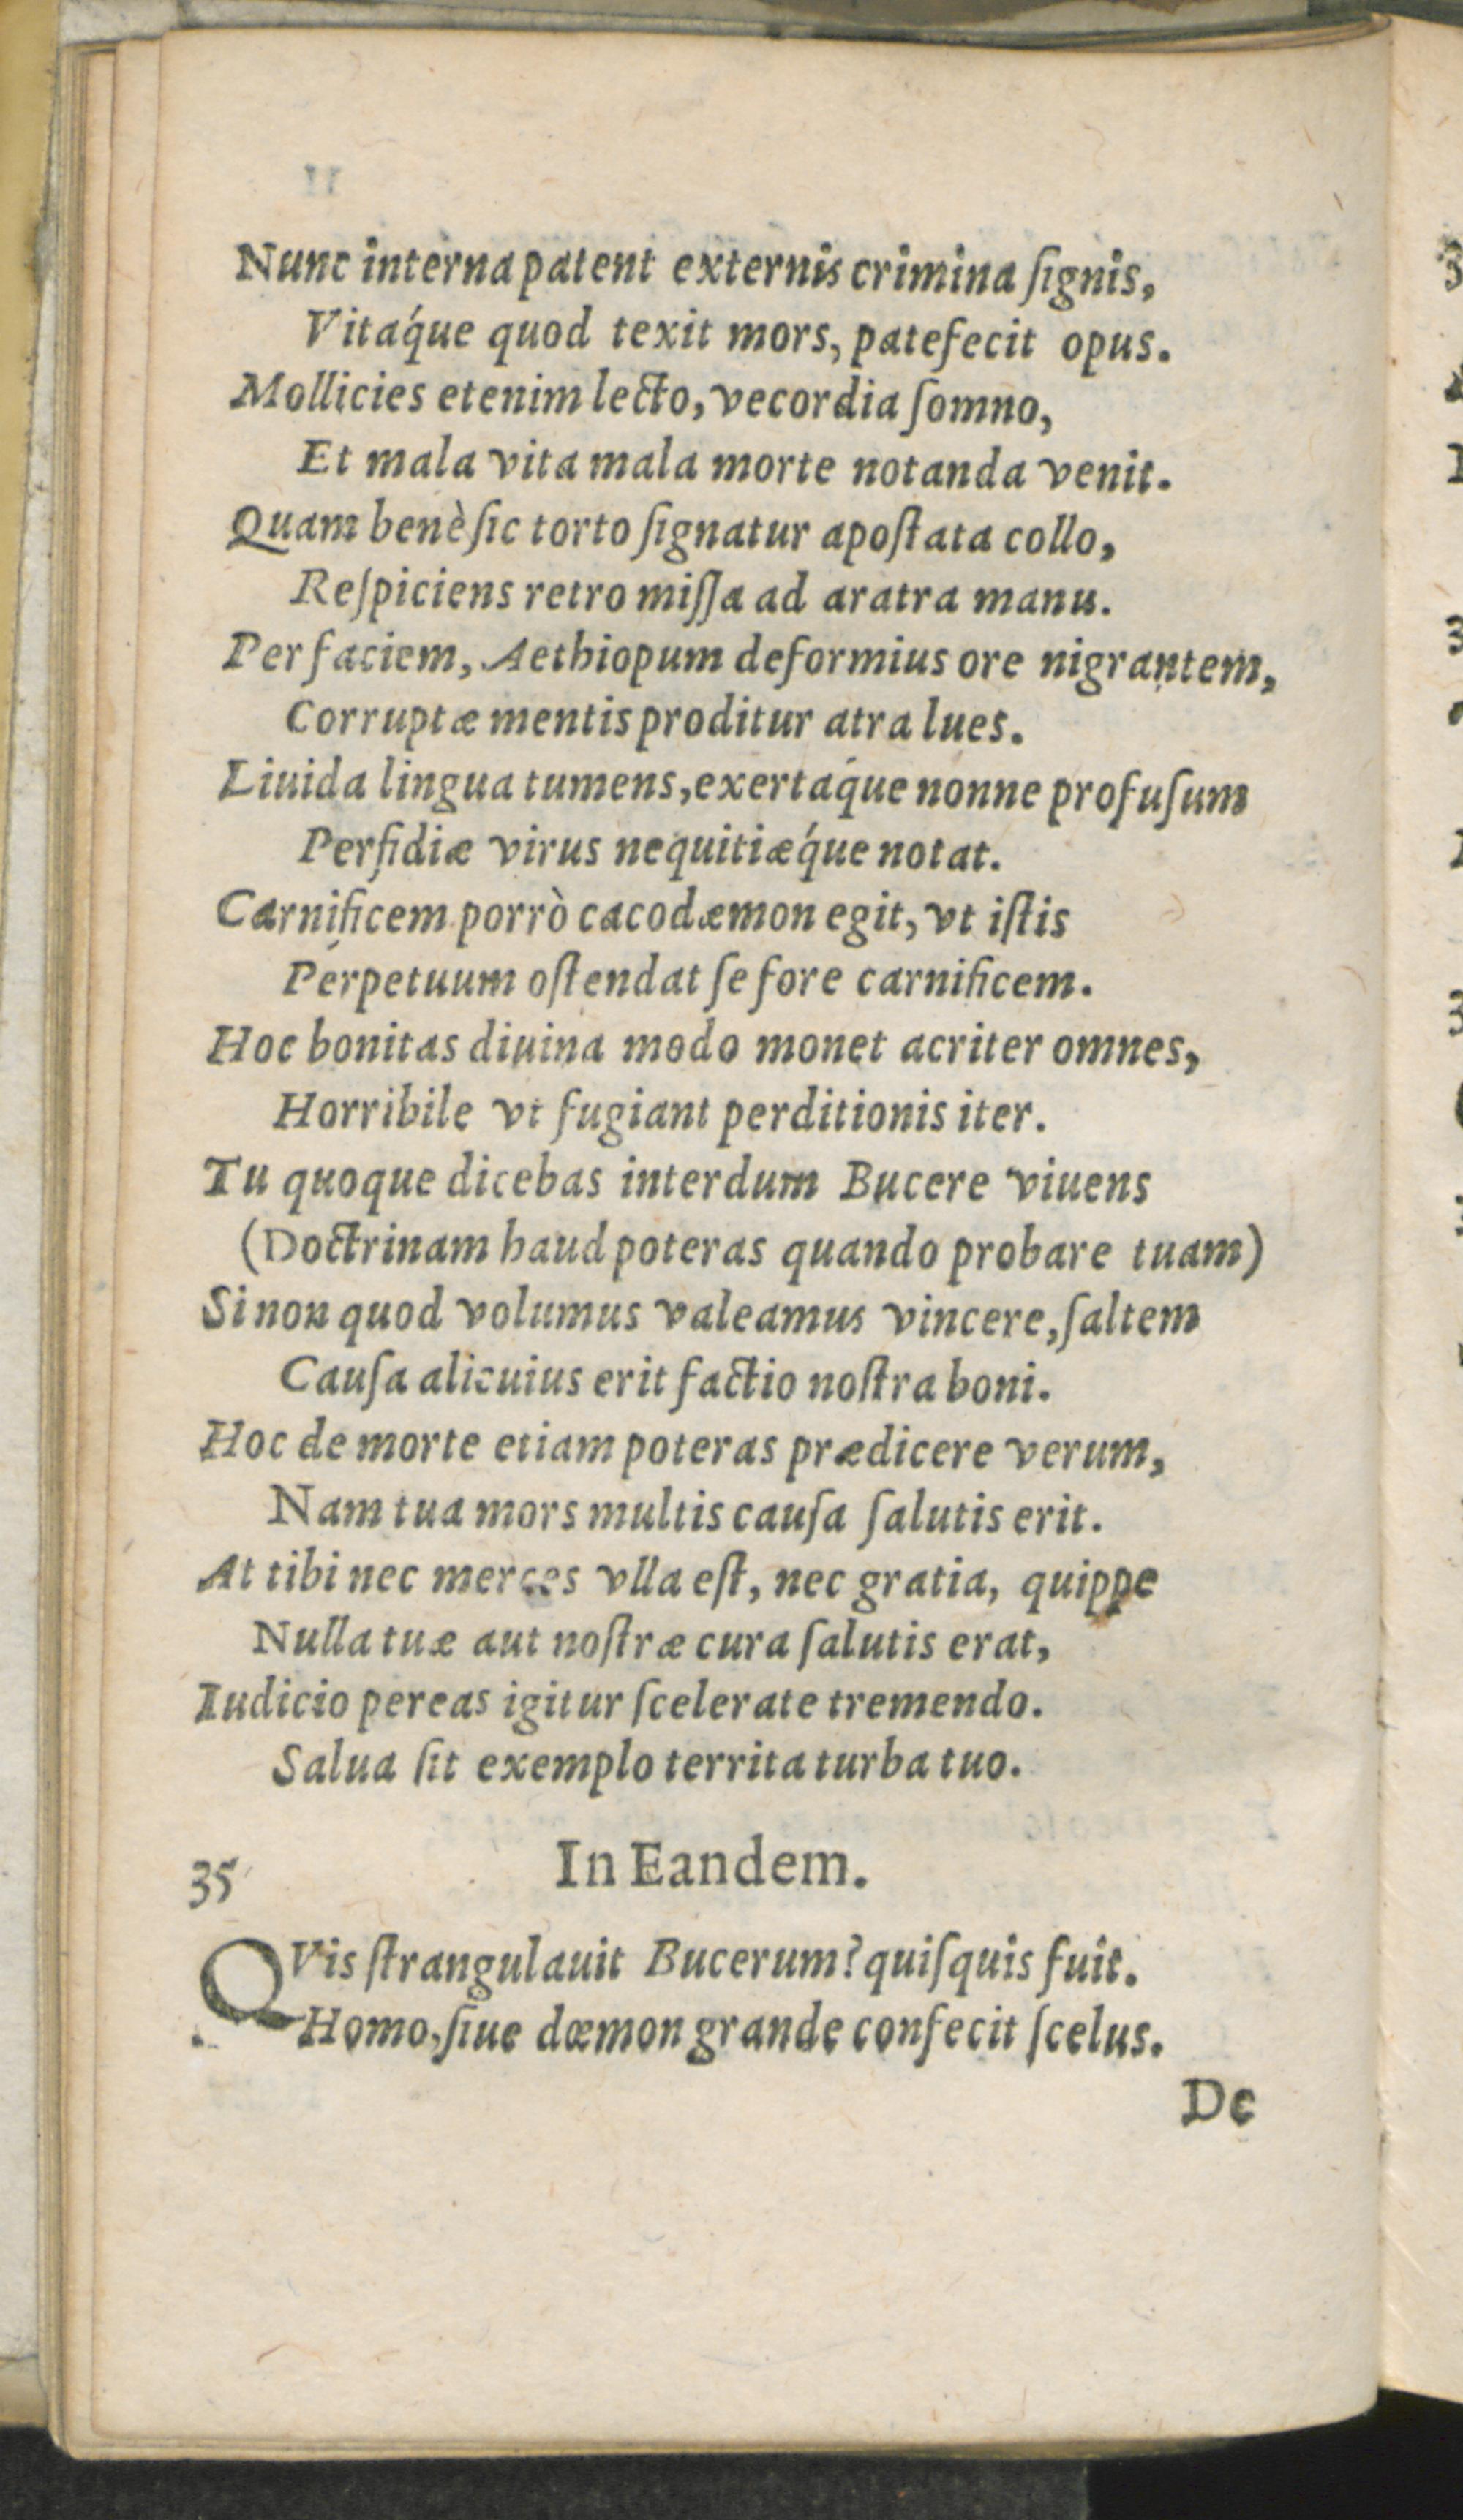 Nunc interna patent externis crimina ſignis,
Vitáque quod texit mors, patefecit opus.
Mollicies etenim lecto, vecordia ſomno,
Et mala vita mala morte notanda venit.
Quam benè ſic torto ſignatur apoſtata collo,
Reſpiciens retro miſſa ad aratra manu.
Per faciem, Aethiopum deformius ore nigrantem,
Corruptæ mentis proditur atra lues.
Liuida lingua tumens, exertáque nonne profuſum
Perfidiæ virus nequitiǽque notat.
Carnificem porrò cacodæmon egit, vt iſtis
Perpetuum oſtendat ſe fore carnificem.
Hoc bonitas diuina modo monet acriter omnes,
Horribile vt fugiant perditionis iter.
Tu quoque dicebas interdum Bucere viuens
(Doctrinam haud poteras quando probare tuam)
Si non quod volumus valeamus vincere, ſaltem
Cauſa alicuius erit factio noſtra boni.
Hoc de morte etiam poteras prædicere verum,
Nam tua mors multis cauſa ſalutis erit.
At tibi nec merces vlla eſt, nec gratia, quippe
Nulla tuæ aut noſtræ cura ſalutis erat,
Iudicio pereas igitur ſcelerate tremendo.
Salua ſit exemplo territa turba tuo.
35 In Eandem.
QVis ſtrangulauit Bucerum? quiſquis fuit.
Homo, ſiue dœmon grande confecit ſcelus.
De